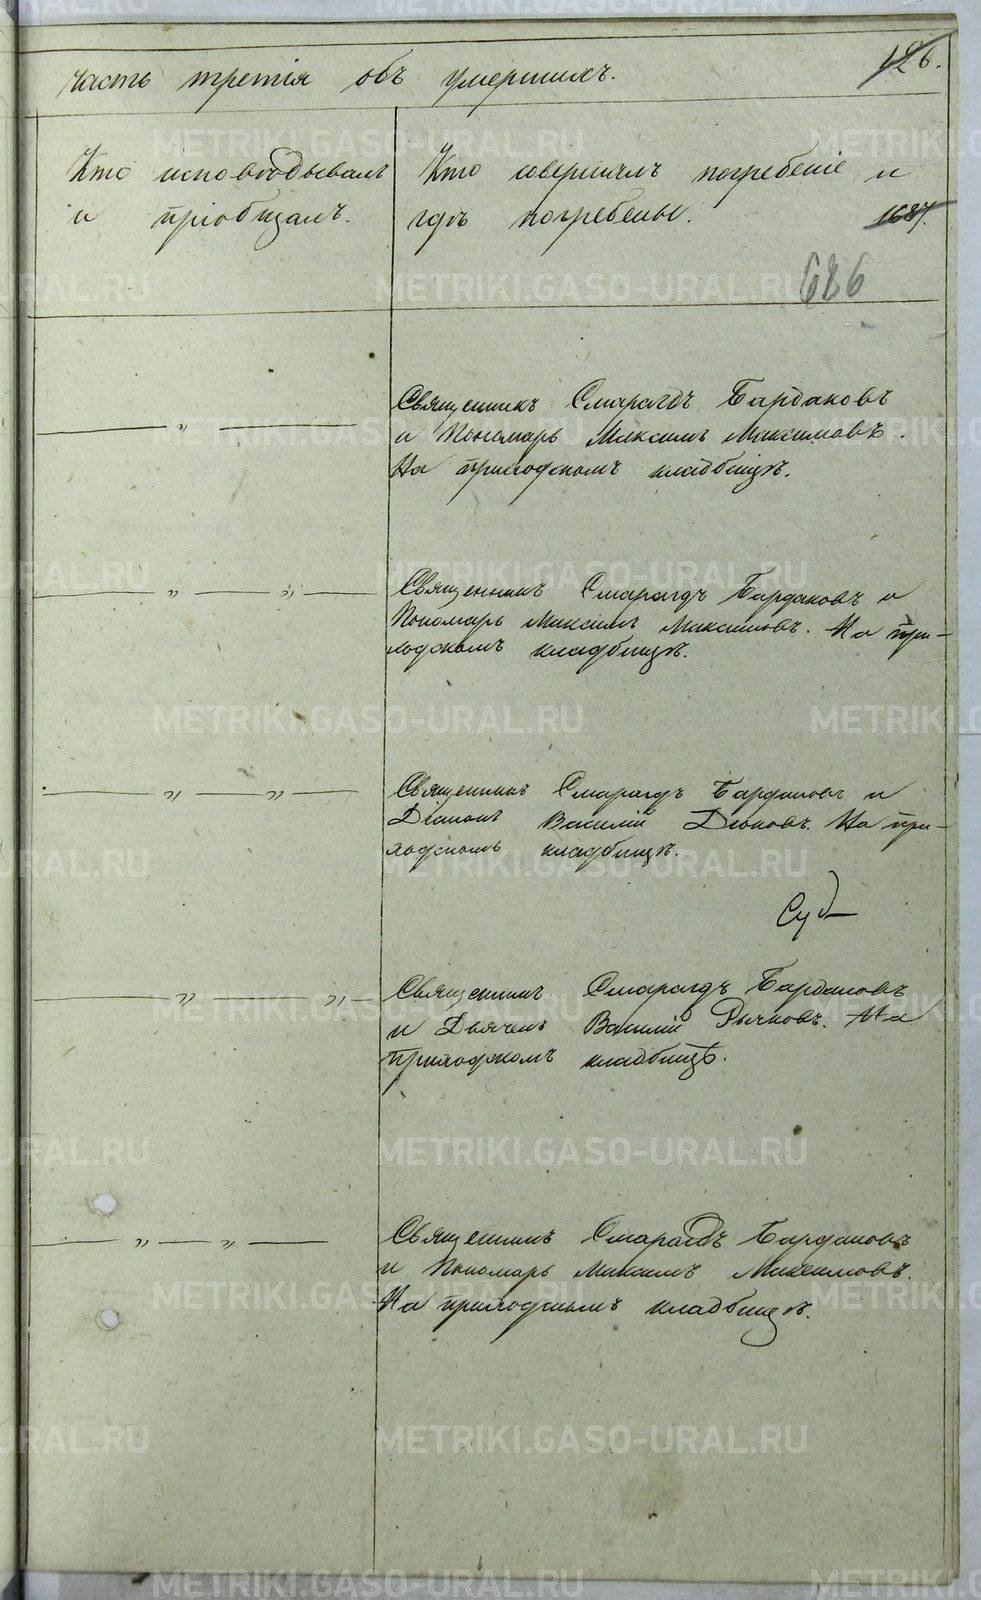 часть третія объ умершихъ.
126.
Кто исповѣдывалъ
и пріобщалъ.
Кто совершалъ погребеніе и
гдѣ погребены.
1687.
686
Священникъ Смарагдъ Бардаковъ
и Пономарь Максимъ Максимовъ.
На приходскомъ кладбищѣ.
Священникъ Смарагдъ Бардаковъ и
Пономарь Максимъ Максимовъ. На при-
ходскомъ кладбищѣ.
Священникъ Смарагдъ Бардаковъ и
Діаконъ Василій На при-
ходскомъ кладбищѣ.
Священникъ Смарагдъ Бардаковъ
и Дьячекъ Василій Рычковъ. На
приходскомъ кладбищѣ.
Священникъ Смарагдъ Бардаковъ
и Пономарь Максимъ Максимовъ.
На приходскомъ кладбищѣ.
METRIKI.GASO-URAL.RU